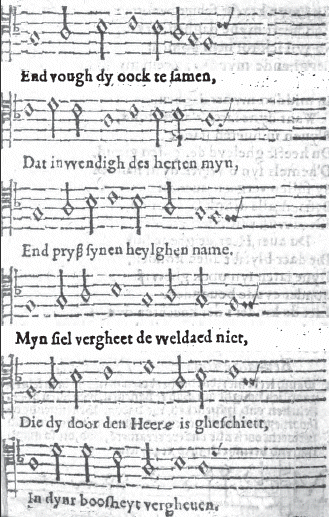 End vough dy oock te samen,
Dat inwendigh des herten myn,
End pryß synen heylghen name.
Myn siel vergheet de weldaed niet,
Die dy door den Heere is gheschiett,
In dynr boosheyt vergheuen.